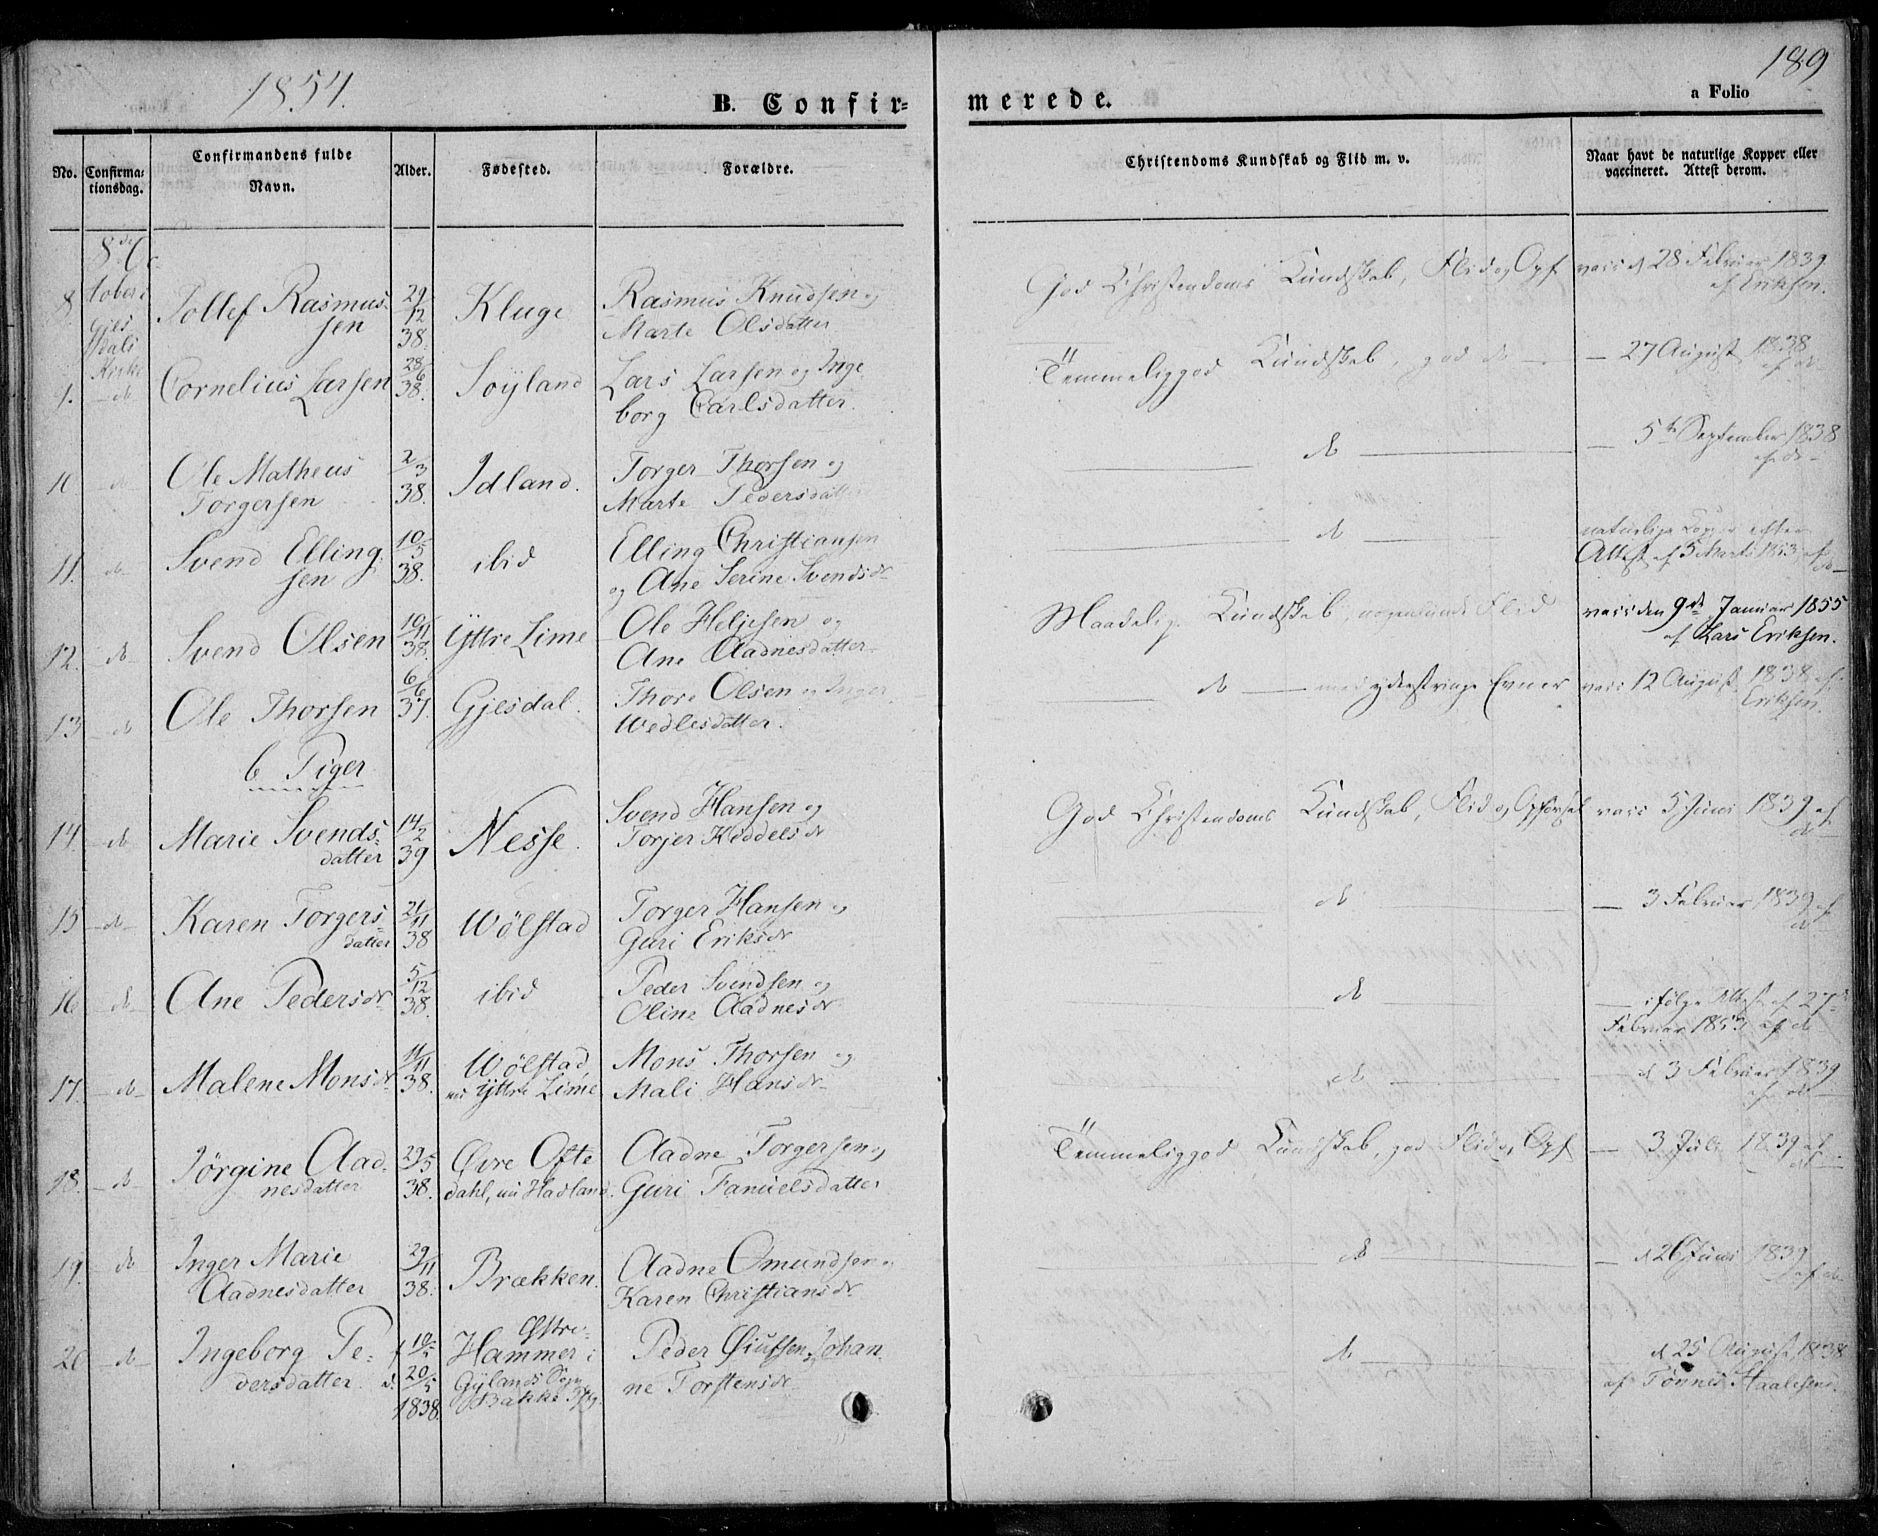 1854.
189
B. Confir=
merede.
a Folio
No.
Confirma=
tionsdag.
Confirmandens fulde
Navn.
Alder.
Fødested.
Forældre.
Christendoms Kundskab og Flid m. v.
Naar havt de naturlige Kopper eller
vaccineret. Attest derom.
8de Oc
tober i
Gjes
dals
Kirke
8. Tollef Rasmus
sen 29/12 38. Kluge Rasmus Knudsen og
Marte Olsdatter
God Christendoms Kundskab, Flid og Opf vacc d 28 Februar 1839
af Eriksen.
9. do Cornelius Larsen 28/6 38. Søyland Lars Larsen og Inge
borg Carlsdatter.
Temmeliggod Kundskab, god do — 27 August 1838
af do
10 do Ole Matheus
Torgersen 2/3 38. Idland. Torger Thorsen og
Marte Pedersdatter
do — 5te September 1838
af do
11. do Svend Elling
sen 10/5 38. ibid Elling Christiansen
og Ane Serine Svendsdr
do naturlige Kopper efter
Attest af 5 Marts 1853 af
do
12. do Svend Olsen 10/11 38. Yttre Lime Ole Heljesen og
Ane Aadnesdatter
Maadelig Kundskab, Flid vacc den 9de Januar 1855
af Lars Eriksen.
13 do Ole Thorsen 6/6 37. Gjesdal. Thore Olsen og Inger
Wedlesdatter.
do — med yderstringe Evner vacc 12 August 1838 af
Eriksen.
b Piger
14. do Marie Svends=
datter 14/2 39 Nesse. Svend Hansen og
Torjer Keddelsdr
God Christendoms Kundskab, Flid og Opførsel vacc 5 Juni 1839 af
do
15 do Karen Torgers=
datter 21/11 38 Wølstad Torger Hansen og
Guri Eriksdr
do — 3 Februar 1839 af
do
16 do Ane Pedersdr 5/12 38. ibid Peder Svendsen og
Oline Aadnesdr
do — ifølge Attest af 27de
Februar 1853 af do
17. do Malene Monsdr 11/11 38. Wølstad
nu Yttre Lime Mons Thorsen og
Mali Hansdr
do d 3 Februar 1839
af do
18. do Jørgine Aad=
nesdatter 29/5 38. Øvre Ofte
dahl, nu Hadland. Aadne Torgersen og
Guri Tamielsdatter
Temmeliggod Kundskab, god Flid og Opf — 3 Juli 1839 af
do
19. do Inger Marie
Aadnesdatter 29/11 38. Brækken. Aadne Omundsen og
Karen Christiansdr
do — d 26 Juni 1839
af do
20 do Ingeborg Pe=
dersdatter f 10/5 d. 20/5 1838. Østre
Hammer i
Gylands Sogn
Bakke Pgj. Peder Siufsen, Johan
ne Torstensdr
do d 25 August 1838
af Tønnes Staalesen